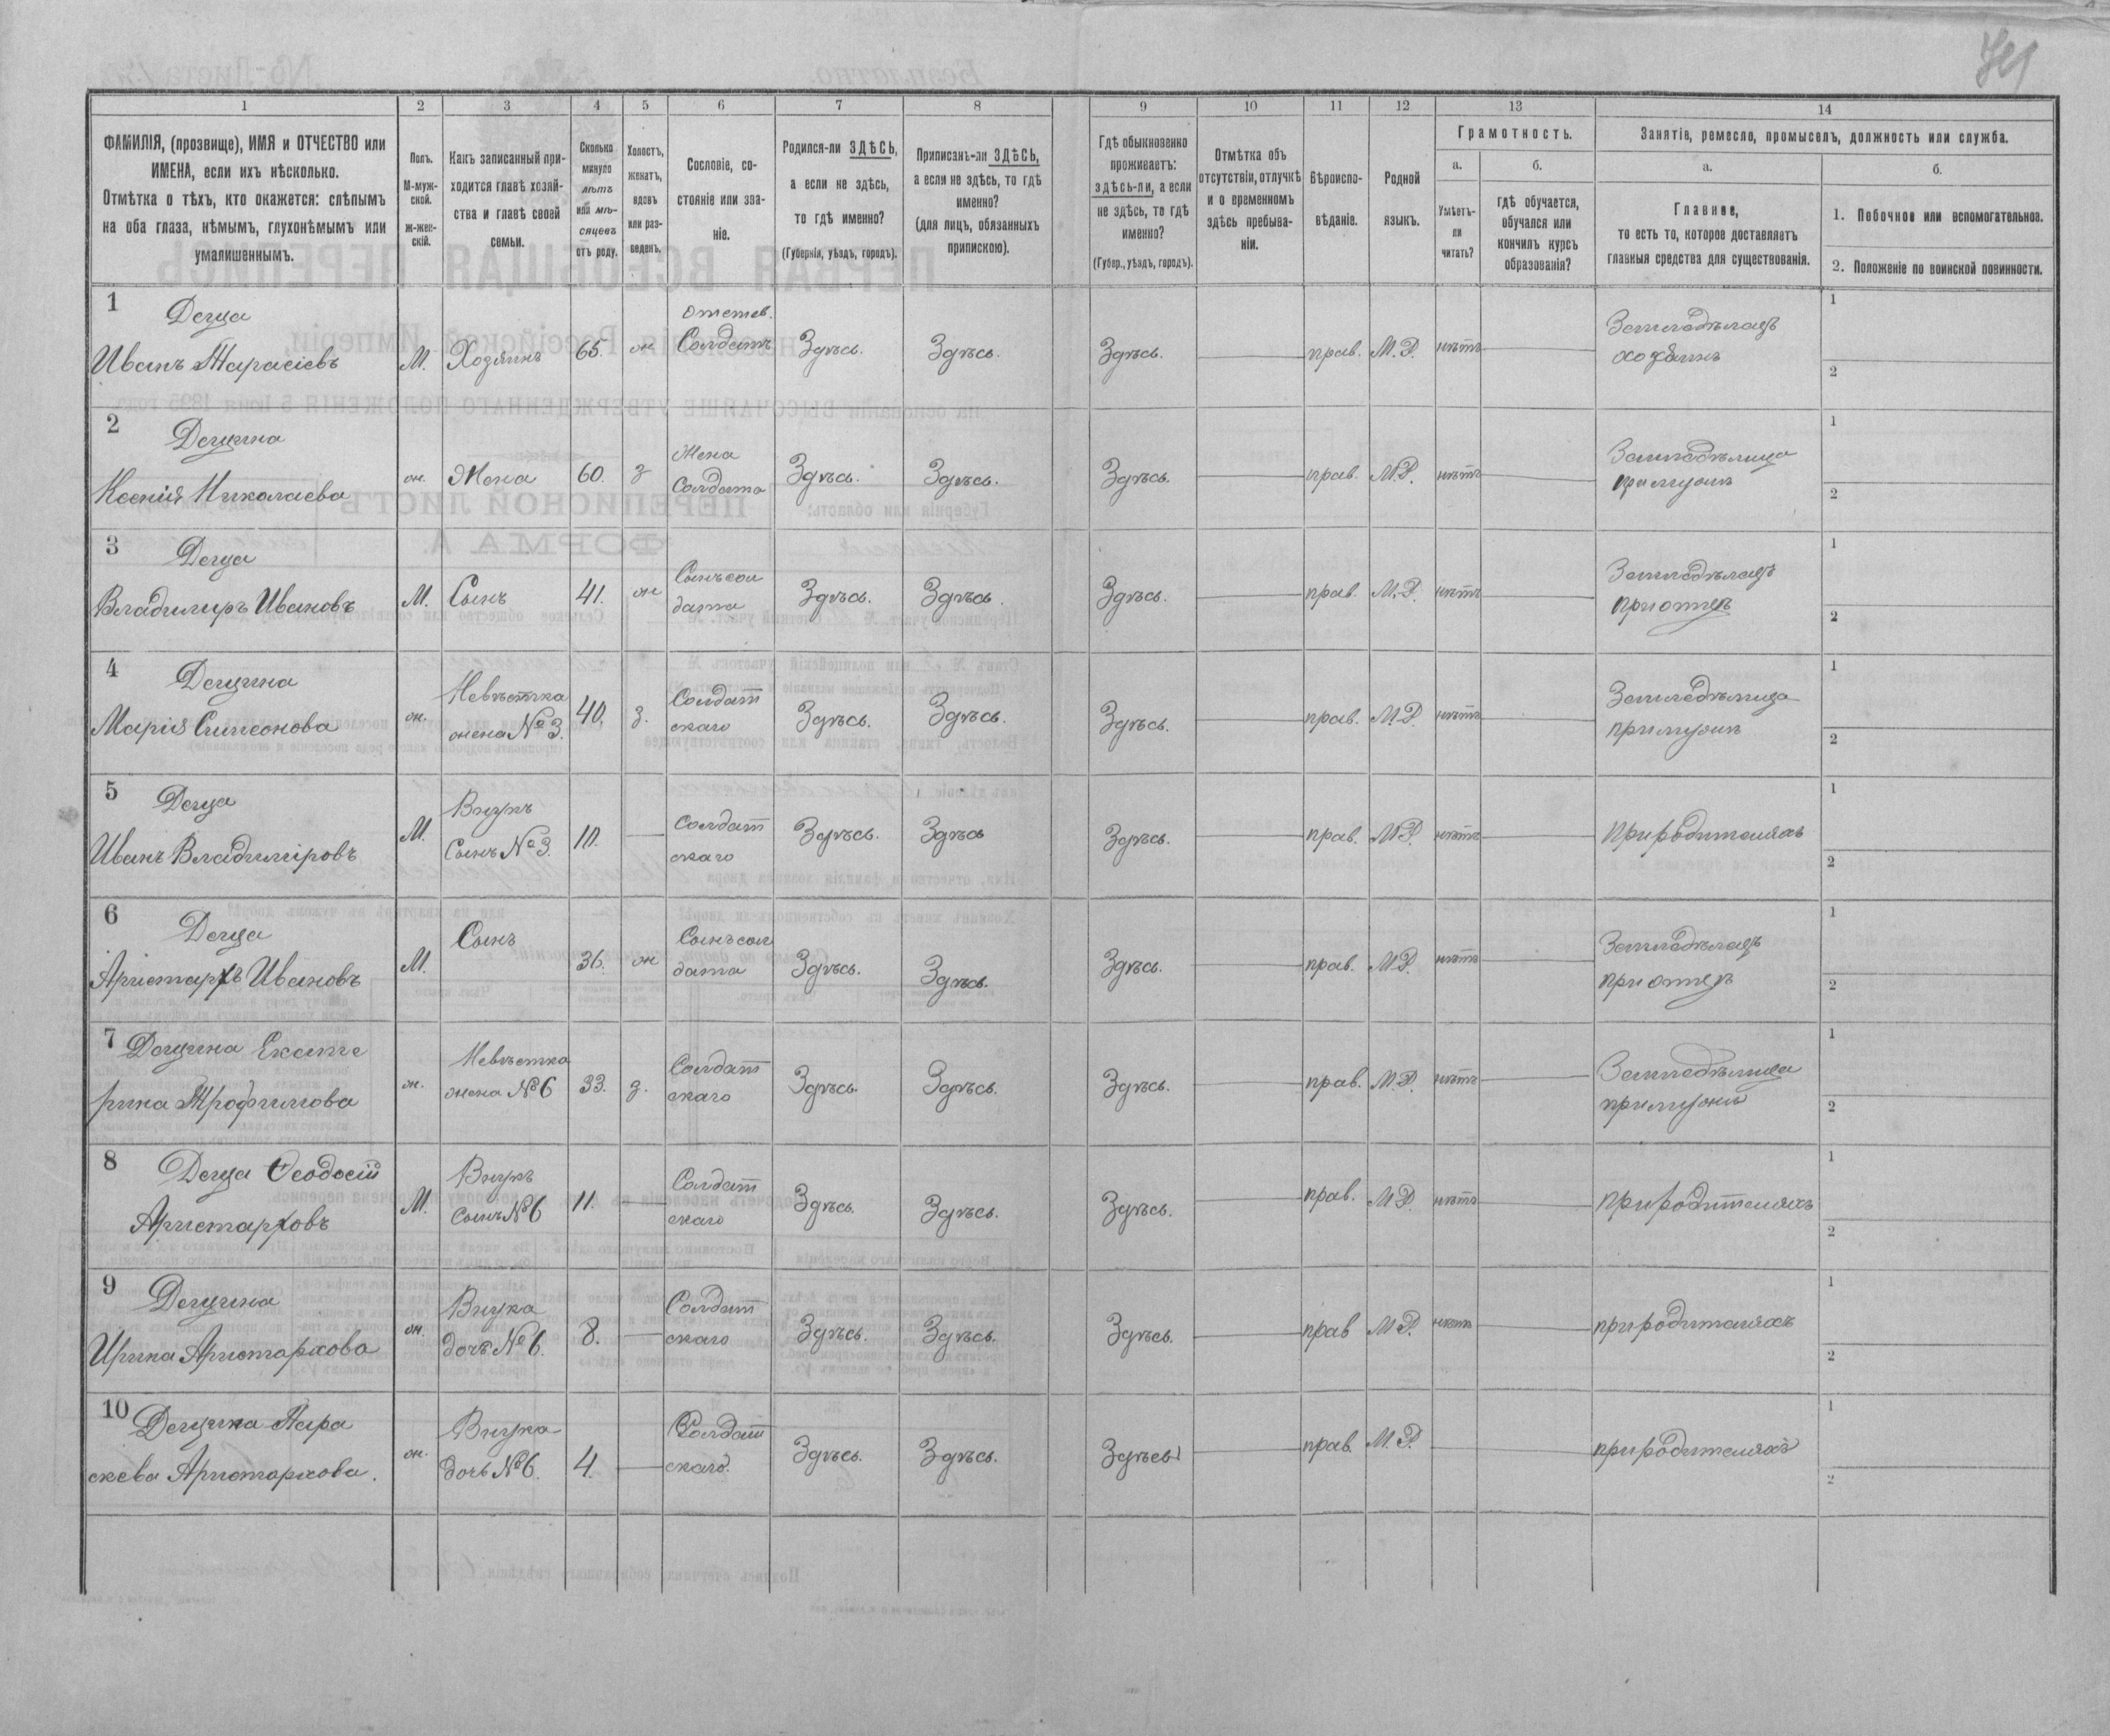 1 2 3 4 5 6 7 8 9 10 11 12 13 14
ФАМИЛІЯ, (прозвище), ИМЯ и ОТЧЕСТВО или
ИМЕНА, если ихъ нѣсколько.
Отмѣтка о тѣхъ, кто окажется: слѣпымъ
на оба глаза, нѣмымъ, глухонѣмымъ или
умалишеннымъ.
Полъ.
М-муж-
ской.
ж-жен-
скій.
Какъ записанный при-
ходится главѣ хозяй-
ства и главѣ своей
семьи.
Сколько
минуло
лѣтъ
или мѣ-
сяцевъ
отъ роду.
Холостъ,
женатъ,
вдовъ
или раз-
веденъ.
Сословіе, со-
стояніе или зва-
ніе.
Родился-ли ЗДѢСЬ,
а если не здѣсь,
то гдѣ именно?
(Губернія, уѣздъ, городъ).
Приписанъ-ли ЗДѢСЬ,
а если не здѣсь, то гдѣ
именно?
(для лицъ, обязанныхъ
припискою).
Гдѣ обыкновенно
проживаетъ:
здѣсь-ли, а если
не здѣсь, то гдѣ
именно?
(Губер., уѣздъ, городъ).
Отмѣтка объ
отсутствіи, отлучкѣ
и о временномъ
здѣсь пребыва-
ніи.
Вѣроиспо-
вѣданіе.
Родной
языкъ.
Грамотность.
а.
Умѣетъ-
ли
читать?
б.
гдѣ обучается,
обучался или
кончилъ курсъ
образованія?
Занятіе, ремесло, промыселъ, должность или служба.
а.
Главное,
то есть то, которое доставляетъ
главныя средства для существованія.
б.
1. Побочное или вспомогательное.
2. Положеніе по воинской повинности.
1 Дегца
Иванъ Тарасіевъ
М. Хозяинъ 65. ж
отстав.
Солдатъ
Здѣсь. Здѣсь. Здѣсь. прав. М.Р. нѣтъ
Земледѣлецъ
хозяинъ
1
2
2 Дегцина
Ксенія Николаева
ж. Жена 60. з
Жена
Солдата
Здѣсь. Здѣсь. Здѣсь. прав. М.Р. нѣтъ
Земледѣлица
при мужѣ
1
2
3 Дегца
Владимиръ Ивановъ
М. Сынъ 41. ж
Сынъ сол
дата
Здѣсь. Здѣсь. Здѣсь. прав. М.Р. нѣтъ
Земледѣлецъ
при отцѣ
1
2
4 Дегцина
Марія Симеонова
ж.
Невѣстка
жена № 3.
40. з.
Солдат
скаго
Здѣсь. Здѣсь. Здѣсь. прав. М.Р. нѣтъ
Земледѣлица
при мужѣ
1
2
5 Дегца
Иванъ Владиміровъ
М.
Внукъ
Сынъ № 3.
10.
Солдат
скаго
Здѣсь. Здѣсь Здѣсь. прав. М.Р. нѣтъ
при родителяхъ
1
2
6 Дегца
Аристархъ Ивановъ
М. Сынъ 36. ж
Сынъ сол
дата
Здѣсь. Здѣсь. Здѣсь. прав. М.Р. нѣтъ
Земледѣлецъ
при отцѣ
1
2
7 Дегцина Екате
рина Трофимова
ж.
Невѣстка
жена № 6
33. з.
Солдат
скаго
Здѣсь. Здѣсь. Здѣсь. прав. М.Р. нѣтъ
Земледѣлица
при мужѣ
1
2
8 Дегца Ѳеодосій
Аристарховъ
М.
Внукъ
сынъ № 6
11.
Солдат
скаго
Здѣсь. Здѣсь. Здѣсь. прав. М.Р. нѣтъ
при родителяхъ
1
2
9 Дегцина
Ирина Аристархова
ж.
Внука
дочь № 6.
8.
Солдат
скаго
Здѣсь. Здѣсь. Здѣсь. прав М.Р. нѣтъ
при родителяхъ
1
2
10 Дегцина Пара
скева Аристархова.
ж.
Внука
дочь № 6.
4.
Солдат
скаго.
Здѣсь. Здѣсь. Здѣсь прав. М.Р.
при родителяхъ
1
2